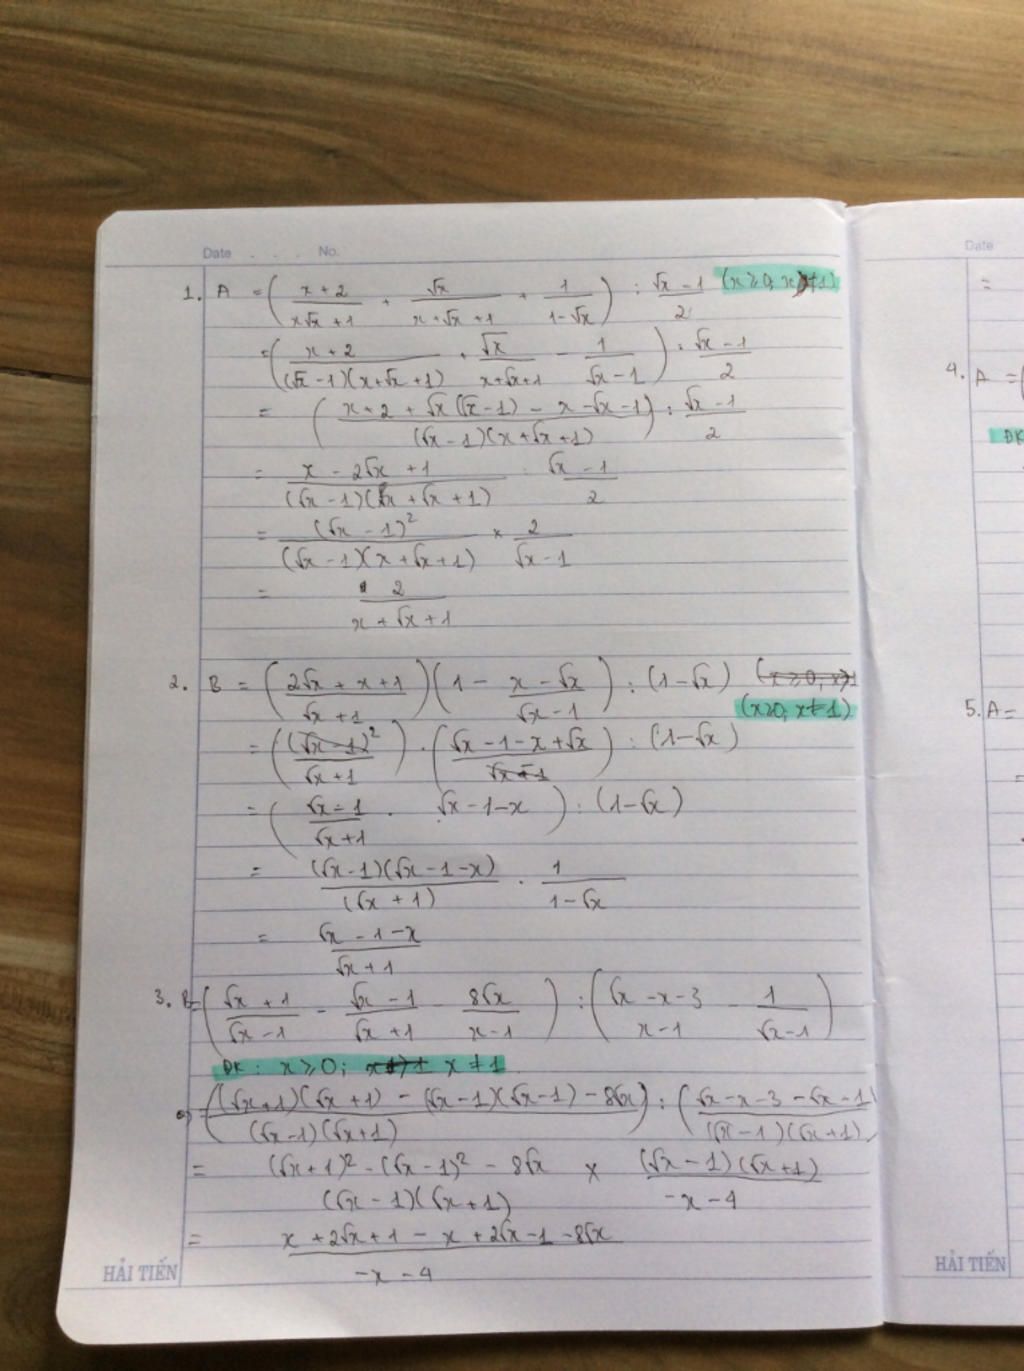 Date . . . No.
1. A = ( (x+2)/(x√x+1) + √x/(x+√x+1) + 1/(1-√x) ) : (√x-1)/2 (x≥0, x≠1)
= ( (x+2)/((√x-1)(x+√x+1)) + √x/(x+√x+1) - 1/(√x-1) ) : (√x-1)/2
= ( (x+2+√x(√x-1)-x-√x-1)/((√x-1)(x+√x+1)) ) : (√x-1)/2
= (x-2√x+1)/((√x-1)(x+√x+1)) : (√x-1)/2
= (√x-1)²/((√x-1)(x+√x+1)) × 2/(√x-1)
= 2/(x+√x+1)
2. B = ( (2√x+x+1)/(√x+1) ) ( 1 - (x-√x)/(√x-1) ) : (1-√x)
(x≥0; x≠1)
= ( (√x-1)²/(√x+1) ) . ( (√x-1-x+√x)/(√x-1) ) : (1-√x)
= ( (√x-1)/(√x+1) . √x-1-x ) : (1-√x)
= (√x-1)(√x-1-x)/(√x+1) . 1/(1-√x)
= (√x-1-x)/(√x+1)
3. B = ( (√x+1)/(√x-1) - (√x-1)/(√x+1) - 8√x/(x-1) ) : ( (√x-x-3)/(x-1) - 1/(√x-1) )
ĐK: x≥0; x≠1
a) = ( ((√x+1)(√x+1)-(√x-1)(√x-1)-8√x)/((√x-1)(√x+1)) ) : ( (√x-x-3-√x-1)/((√x-1)(√x+1)) )
= ((√x+1)²-(√x-1)²-8√x)/((√x-1)(√x+1)) × (√x-1)(√x+1)/(-x-4)
= (x+2√x+1-x+2√x-1-8√x)/(-x-4)
HẢI TIẾN
Date
=
4. A =
ĐK
5. A =
=
HẢI TIẾN